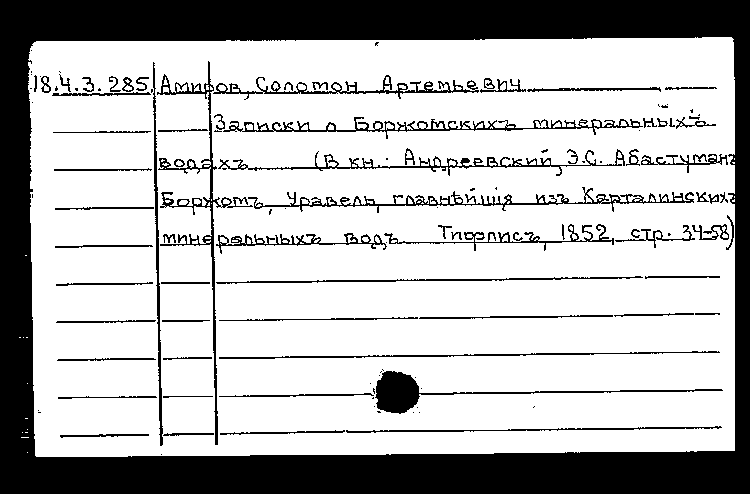 18.4.3.285. Амиров, Соломон Артемьевич
Записки о Боржомскихъ минеральныхъ
водахъ (В кн.: Андреевский, Э.С. Абастуманъ
Боржомъ, Уравель, главнѣйшія изъ Карталинскихъ
минеральныхъ водъ Тифлисъ, 1852, стр. 34-58)